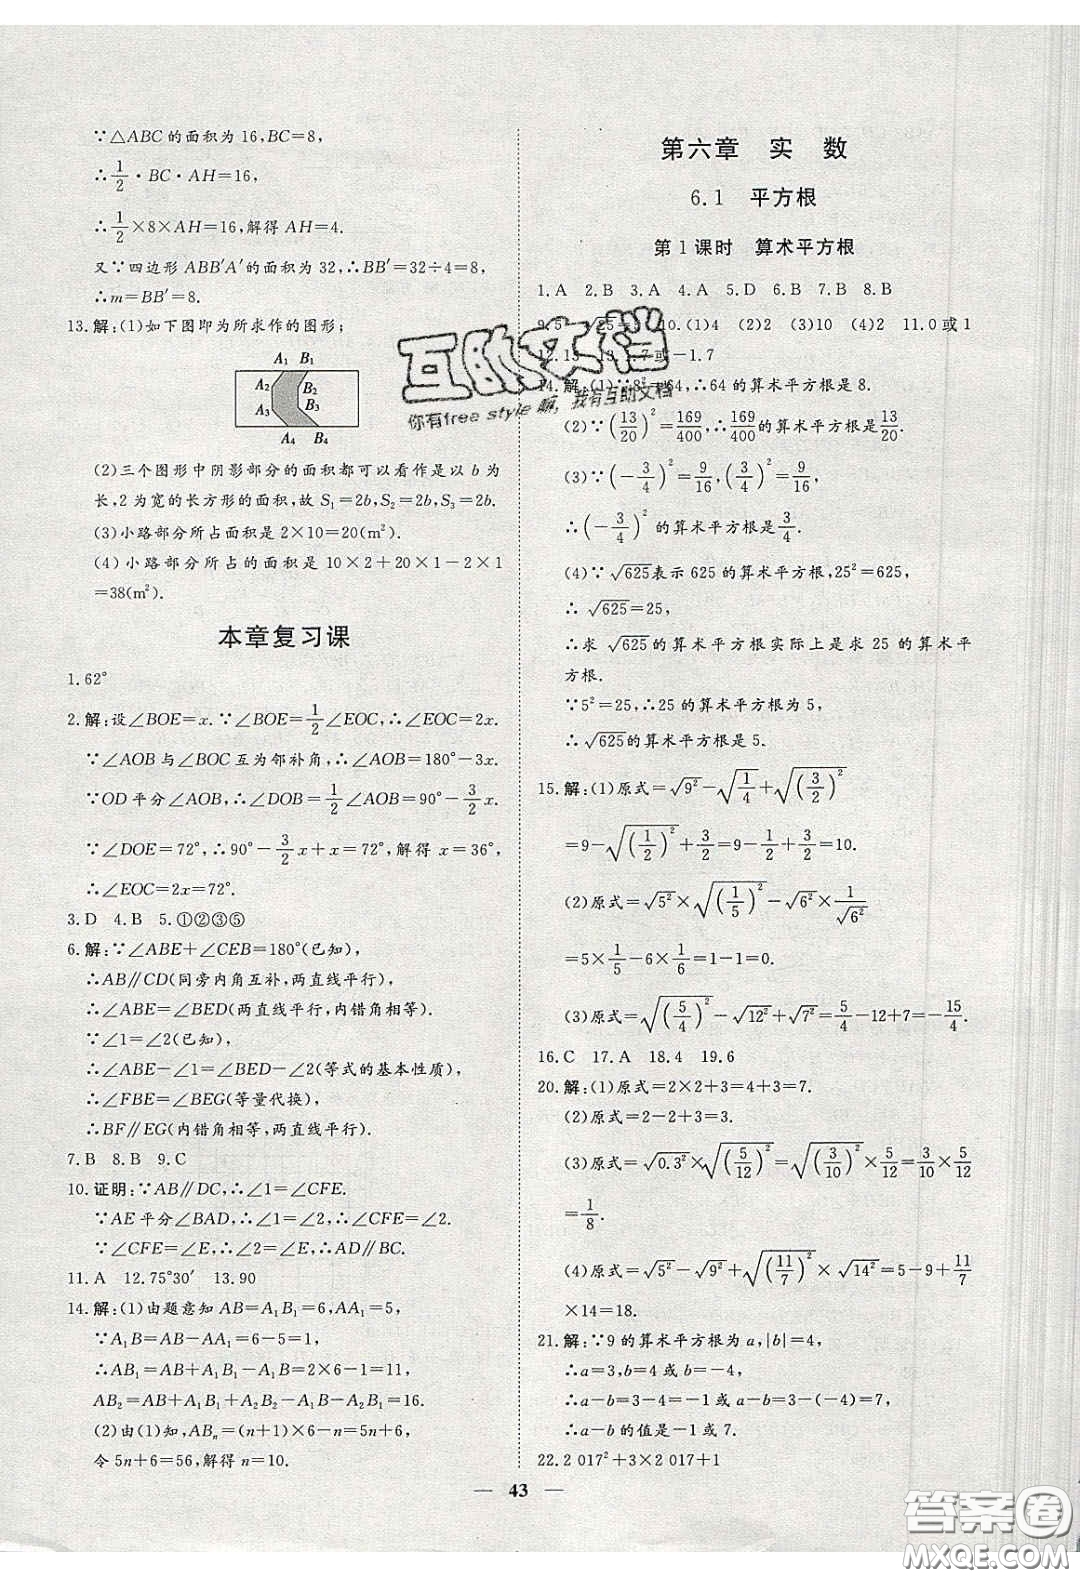 ∵△ABC的面积为16,BC=8,
∴1/2·BC·AH=16,
∴1/2×8×AH=16,解得AH=4.
又∵四边形ABB′A′的面积为32,∴BB′=32÷4=8,
∴m=BB′=8.
13.解:(1)如下图即为所求作的图形;
A₁ B₁
A₂ B₂
A₃ B₃
A₄ B₄
(2)三个图形中阴影部分的面积都可以看作是以b为
长,2为宽的长方形的面积,故S₁=2b,S₂=2b,S₃=2b.
(3)小路部分所占面积是2×10=20(m²).
(4)小路部分所占的面积是10×2+20×1-2×1
=38(m²).
本章复习课
1.62°
2.解:设∠BOE=x.∵∠BOE=1/2∠EOC,∴∠EOC=2x.
∵∠AOB与∠BOC互为邻补角,∴∠AOB=180°-3x.
∵OD平分∠AOB,∴∠DOB=1/2∠AOB=90°-3/2x.
∵∠DOE=72°,∴90°-3/2x+x=72°,解得x=36°,
∴∠EOC=2x=72°.
3.D 4.B 5.①②③⑤
6.解:∵∠ABE+∠CEB=180°(已知),
∴AB∥CD(同旁内角互补,两直线平行),
∴∠ABE=∠BED(两直线平行,内错角相等).
∵∠1=∠2(已知),
∴∠ABE-∠1=∠BED-∠2(等式的基本性质),
∴∠FBE=∠BEG(等量代换),
∴BF∥EG(内错角相等,两直线平行).
7.B 8.B 9.C
10.证明:∵AB∥DC,∴∠1=∠CFE.
∵AE平分∠BAD,∴∠1=∠2,∴∠CFE=∠2.
∵∠CFE=∠E,∴∠2=∠E,∴AD∥BC.
11.A 12.75°30′ 13.90
14.解:(1)由题意知AB=A₁B₁=6,AA₁=5,
∵A₁B=AB-AA₁=6-5=1,
∴AB₁=AB+A₁B₁-A₁B=2×6-1=11,
AB₂=AB+A₁B₁+A₂B₂-A₁B-A₂B₁=16.
(2)由(1)知,ABₙ=(n+1)×6-n=5n+6,
令5n+6=56,解得n=10.
第六章 实 数
6.1 平方根
第1课时 算术平方根
1.A 2.B 3.A 4.A 5.D 6.B 7.B 8.B
9.5 √25=5 10.(1)4 (2)2 (3)10 (4)2 11.0或1
12.13 13.1.7或-1.7
14.解:(1)∵8²=64,∴64的算术平方根是8.
(2)∵(13/20)²=169/400,∴169/400的算术平方根是13/20.
(3)∵(-3/4)²=9/16,(3/4)²=9/16,
∴(-3/4)²的算术平方根是3/4.
(4)∵√625表示625的算术平方根,25²=625,
∴√625=25,
∴求√625的算术平方根实际上是求25的算术平
方根.
∵5²=25,∴25的算术平方根为5,
∴√625的算术平方根是5.
15.解:(1)原式=√9²-√(1/4)+√(3/2)²
=9-√(1/2)²+3/2=9-1/2+3/2=10.
(2)原式=√5²×√(1/5)²-√6²×1/√6²
=5×1/5-6×1/6=1-1=0.
(3)原式=√(5/4)²-√12²+√7²=5/4-12+7=-15/4.
16.C 17.A 18.4 19.6
20.解:(1)原式=2×2+3=4+3=7.
(2)原式=2-2+3=3.
(3)原式=√0.3²×√(5/12)²=√(3/10)²×5/12=3/10×5/12
=1/8.
(4)原式=√5²-√9²+√(11/7)²×√14²=5-9+11/7
×14=18.
21.解:∵9的算术平方根为a,|b|=4,
∴a=3,b=4或b=-4,
∴a-b=3-4=-1或a-b=3-(-4)=7,
∴a-b的值是-1或7.
22.2 017²+3×2 017+1
43
互助文档
你有free style嘛,我有互助文档
答案卷
MXQE.COM